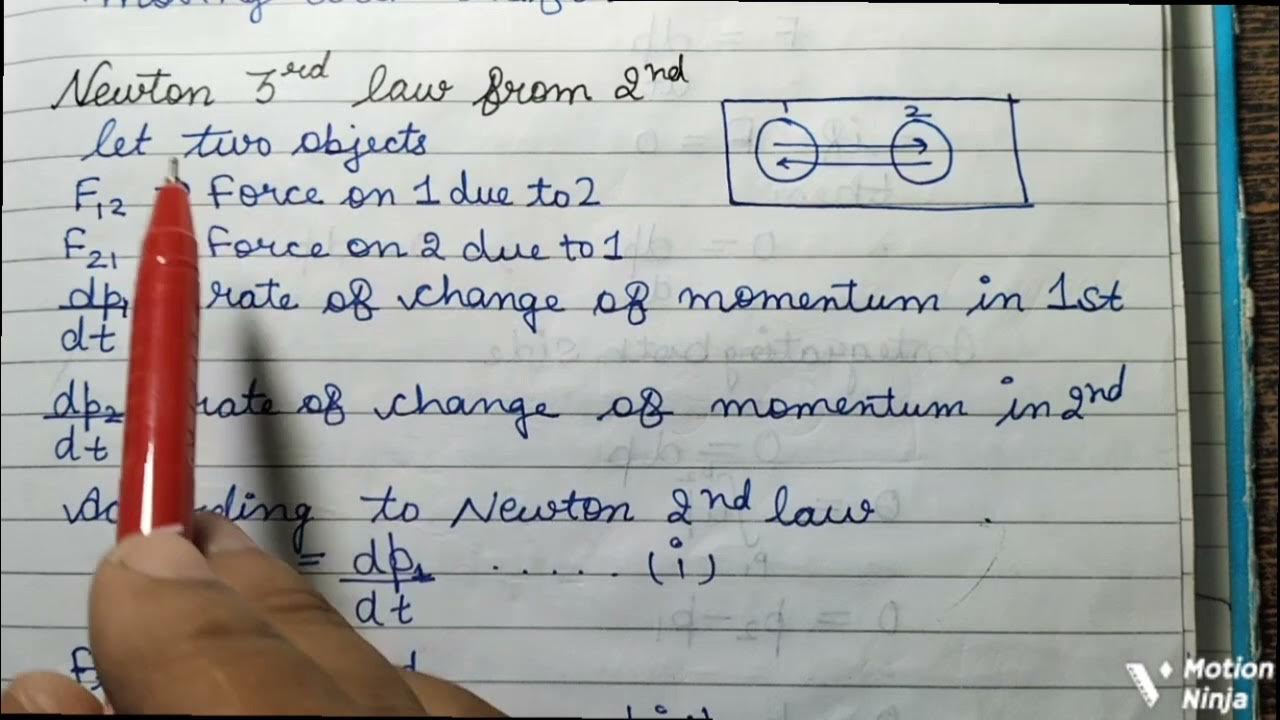 Newton 3rd law from 2nd
let two objects
1 2
F12 Force on 1 due to 2
F21 Force on 2 due to 1
dp1 rate of change of momentum in 1st
dt
dp2 rate of change of momentum in 2nd
dt
According to Newton 2nd law
= dp1 ..... (i)
dt
Motion
Ninja